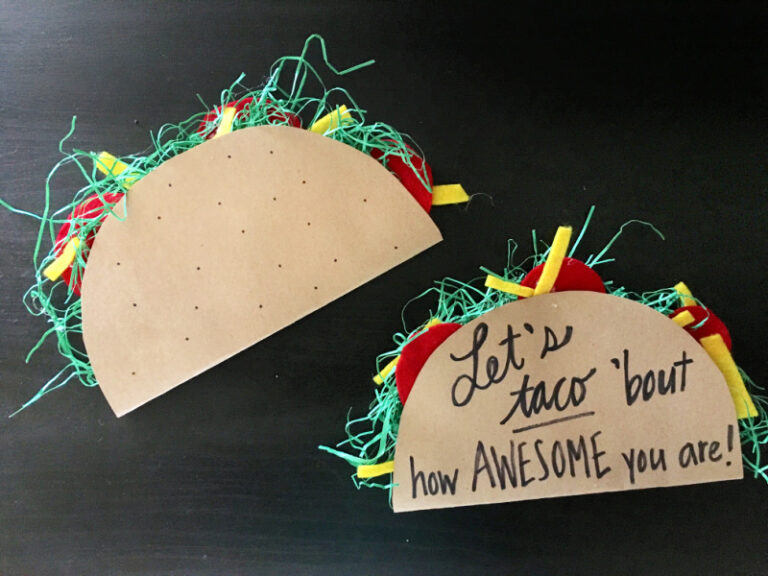 Let's
taco 'bout
how AWESOME you are!